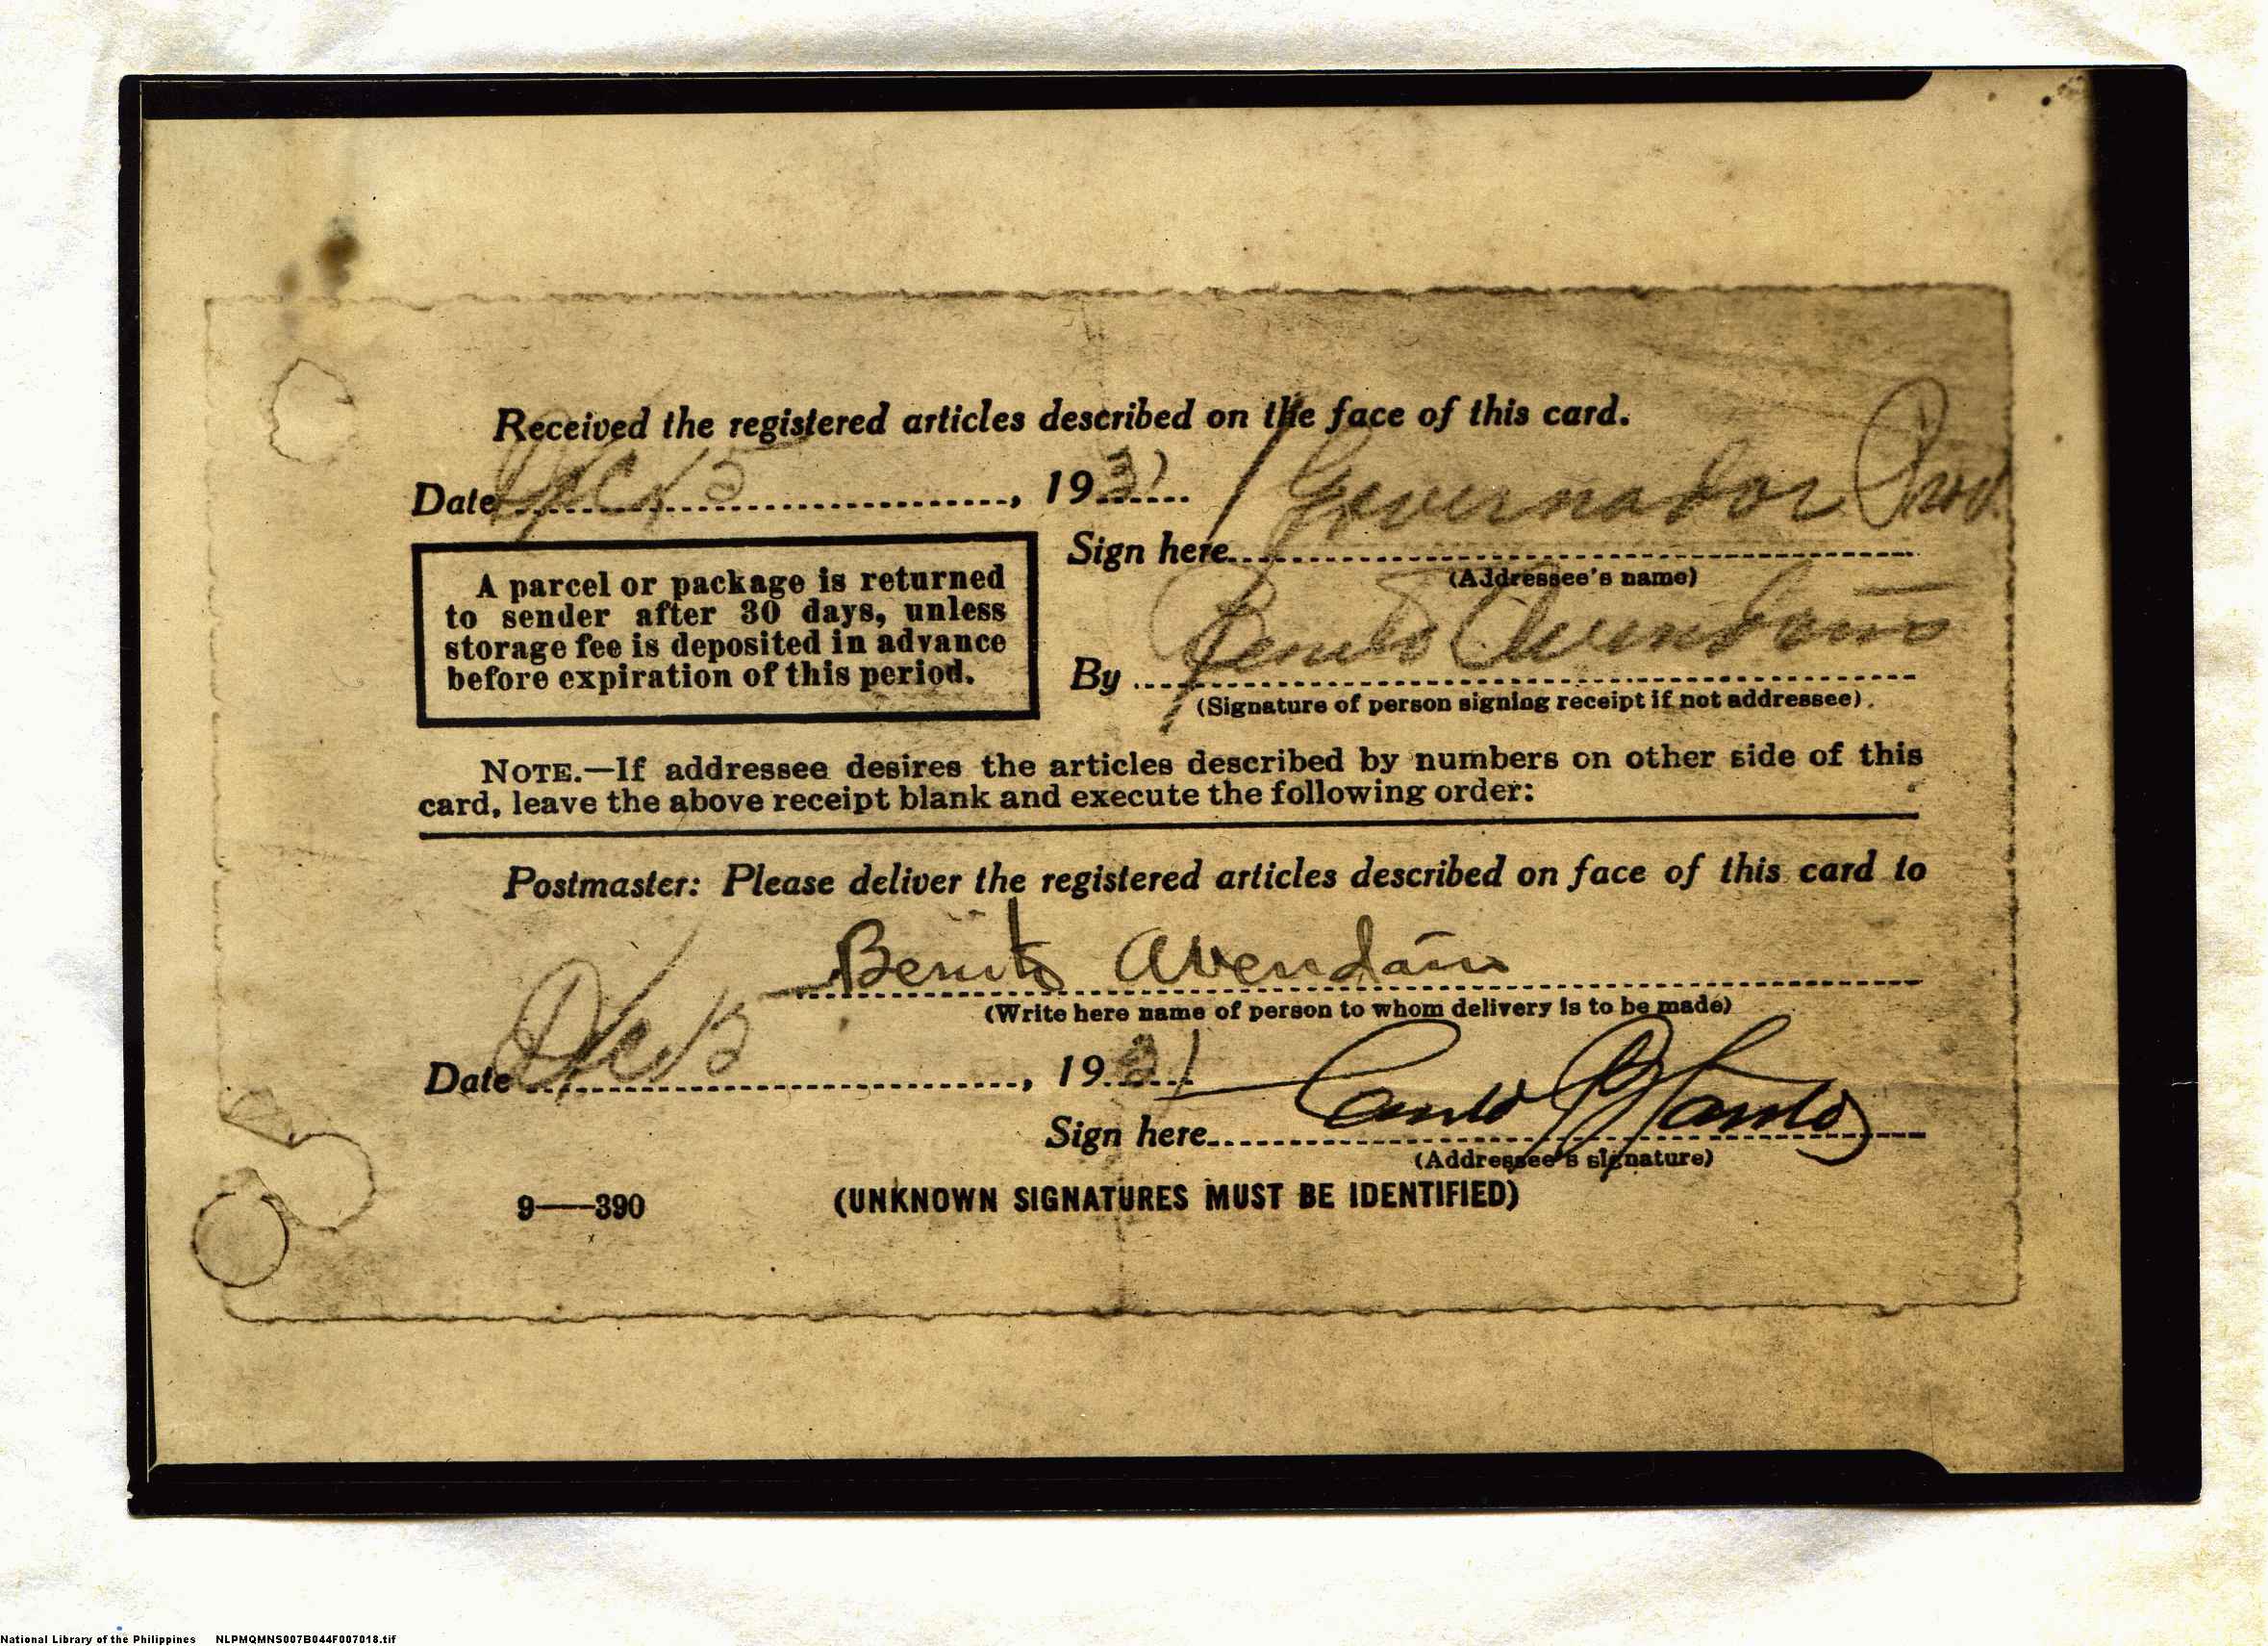 Received the registered articles described on the face of this card.
Date Dec 15, 1931
Governador Prov.
Sign here
(Addressee's name)
A parcel or package is returned
to sender after 30 days, unless
storage fee is deposited in advance
before expiration of this period.
By Benito Avendaño
(Signature of person signing receipt if not addressee).
NOTE.—If addressee desires the articles described by numbers on other side of this
card, leave the above receipt blank and execute the following order:
Postmaster: Please deliver the registered articles described on face of this card to
Benito Avendaño
(Write here name of person to whom delivery is to be made)
Date Dec 15, 1931
Sign here
(Addressee's signature)
9—390 (UNKNOWN SIGNATURES MUST BE IDENTIFIED)
National Library of the Philippines NLPMQMNS007B044F007018.tif